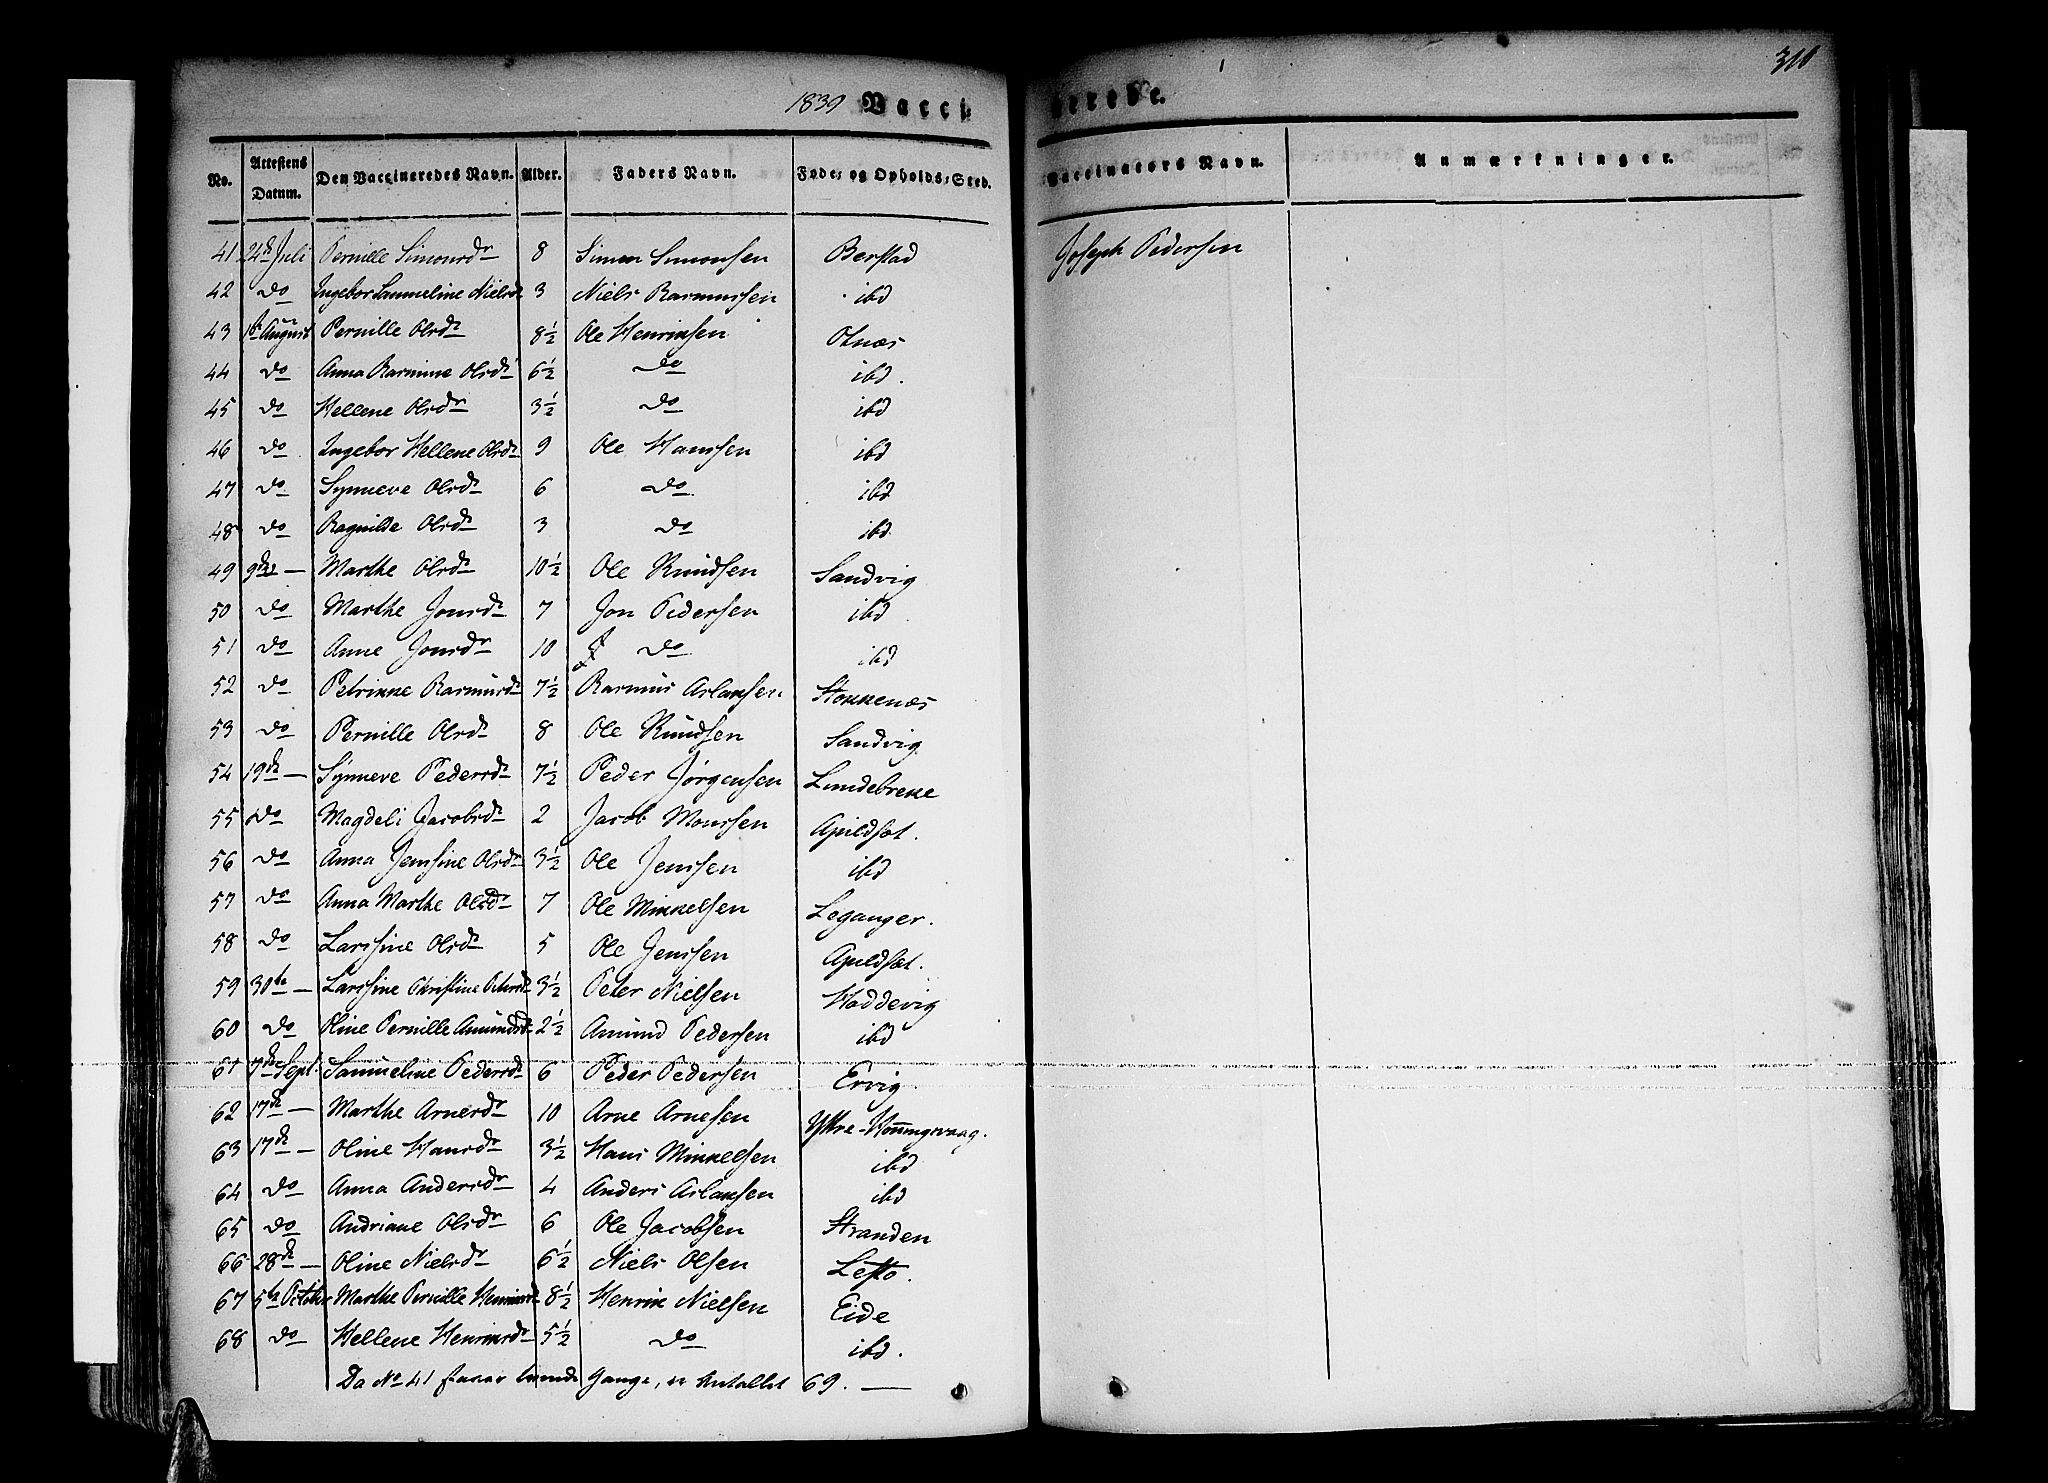 1839 Vacci nerede. 310
No. Attestens Datum. Den Vaccineredes Navn. Alder. Faders Navn. Føde- og Opholds-Sted. Vaccinators Navn. Anmærkninger.
41 24de Juli Pernille Simonsdr 8 Simon Simonsen Berstad Joseph Pedersen
42 do Ingebor Sammeline Nielsdr 3 Niels Rasmussen ibd
43 1ste August Pernille Olsdr 8½ Ole Henriksen Otnæs
44 do Anna Rasmine Olsdr 6½ do ibd.
45 do Hellene Olsdr 3½ do ibd
46 do Ingebor Hellene Olsdr 9 Ole Hanssen ibd
47 do Synneve Olsdr 6 do ibd
48 do Ragnilde Olsdr 3 do ibd
49 9de — Marthe Olsdr 10½ Ole Knudsen Sandvig
50 do Marthe Jonsdr 7 Jon Pedersen ibd
51 do Anne Jonsdr 10 do ibd
52 do Petrikke Rasmusdr 7½ Rasmus Aslaksen Stokkenæs
53 do Pernille Olsdr 8 Ole Knudsen Sandvig
54 19de — Synneve Pedersdr 7½ Peder Jørgensen Lundebrekke
55 do Magdeli Jacobsdr 2 Jacob Monssen Apildsæt.
56 do Anna Jenssine Olsdr 3½ Ole Jenssen ibd
57 do Anna Marthe Olsdr 7 Ole Mikkelsen Leganger.
58 do Larssine Olsdr 5 Ole Jenssen Apildsæt.
59 30te — Larssine Christine Petersdr 3½ Peter Nielsen Hoddevig
60 do Oline Pernille Amundsdr 2½ Amund Pedersen ibd
61 7de Sept. Samueline Pedersdr 6 Peder Pedersen Ervig.
62 17de — Marthe Arnesdr 10 Arne Arnesen Yttre-Konningsvaag.
63 17de — Oline Hansdr 3½ Hans Mikkelsen ibd
64 do Anna Andersdr 4 Anders Aslaksen ibd
65 do Andriane Olsdr 6 Ole Jacobsen Stranden
66 28de — Oline Nielsdr 6½ Niels Olsen Lesto.
67 5te October Marthe Pernille Henriksdr 8½ Henrik Nielsen Eide
68 do Hellene Henriksdr 5½ do ibd.
Da No 41 staaer tvende Gange, er Antallet 69. —